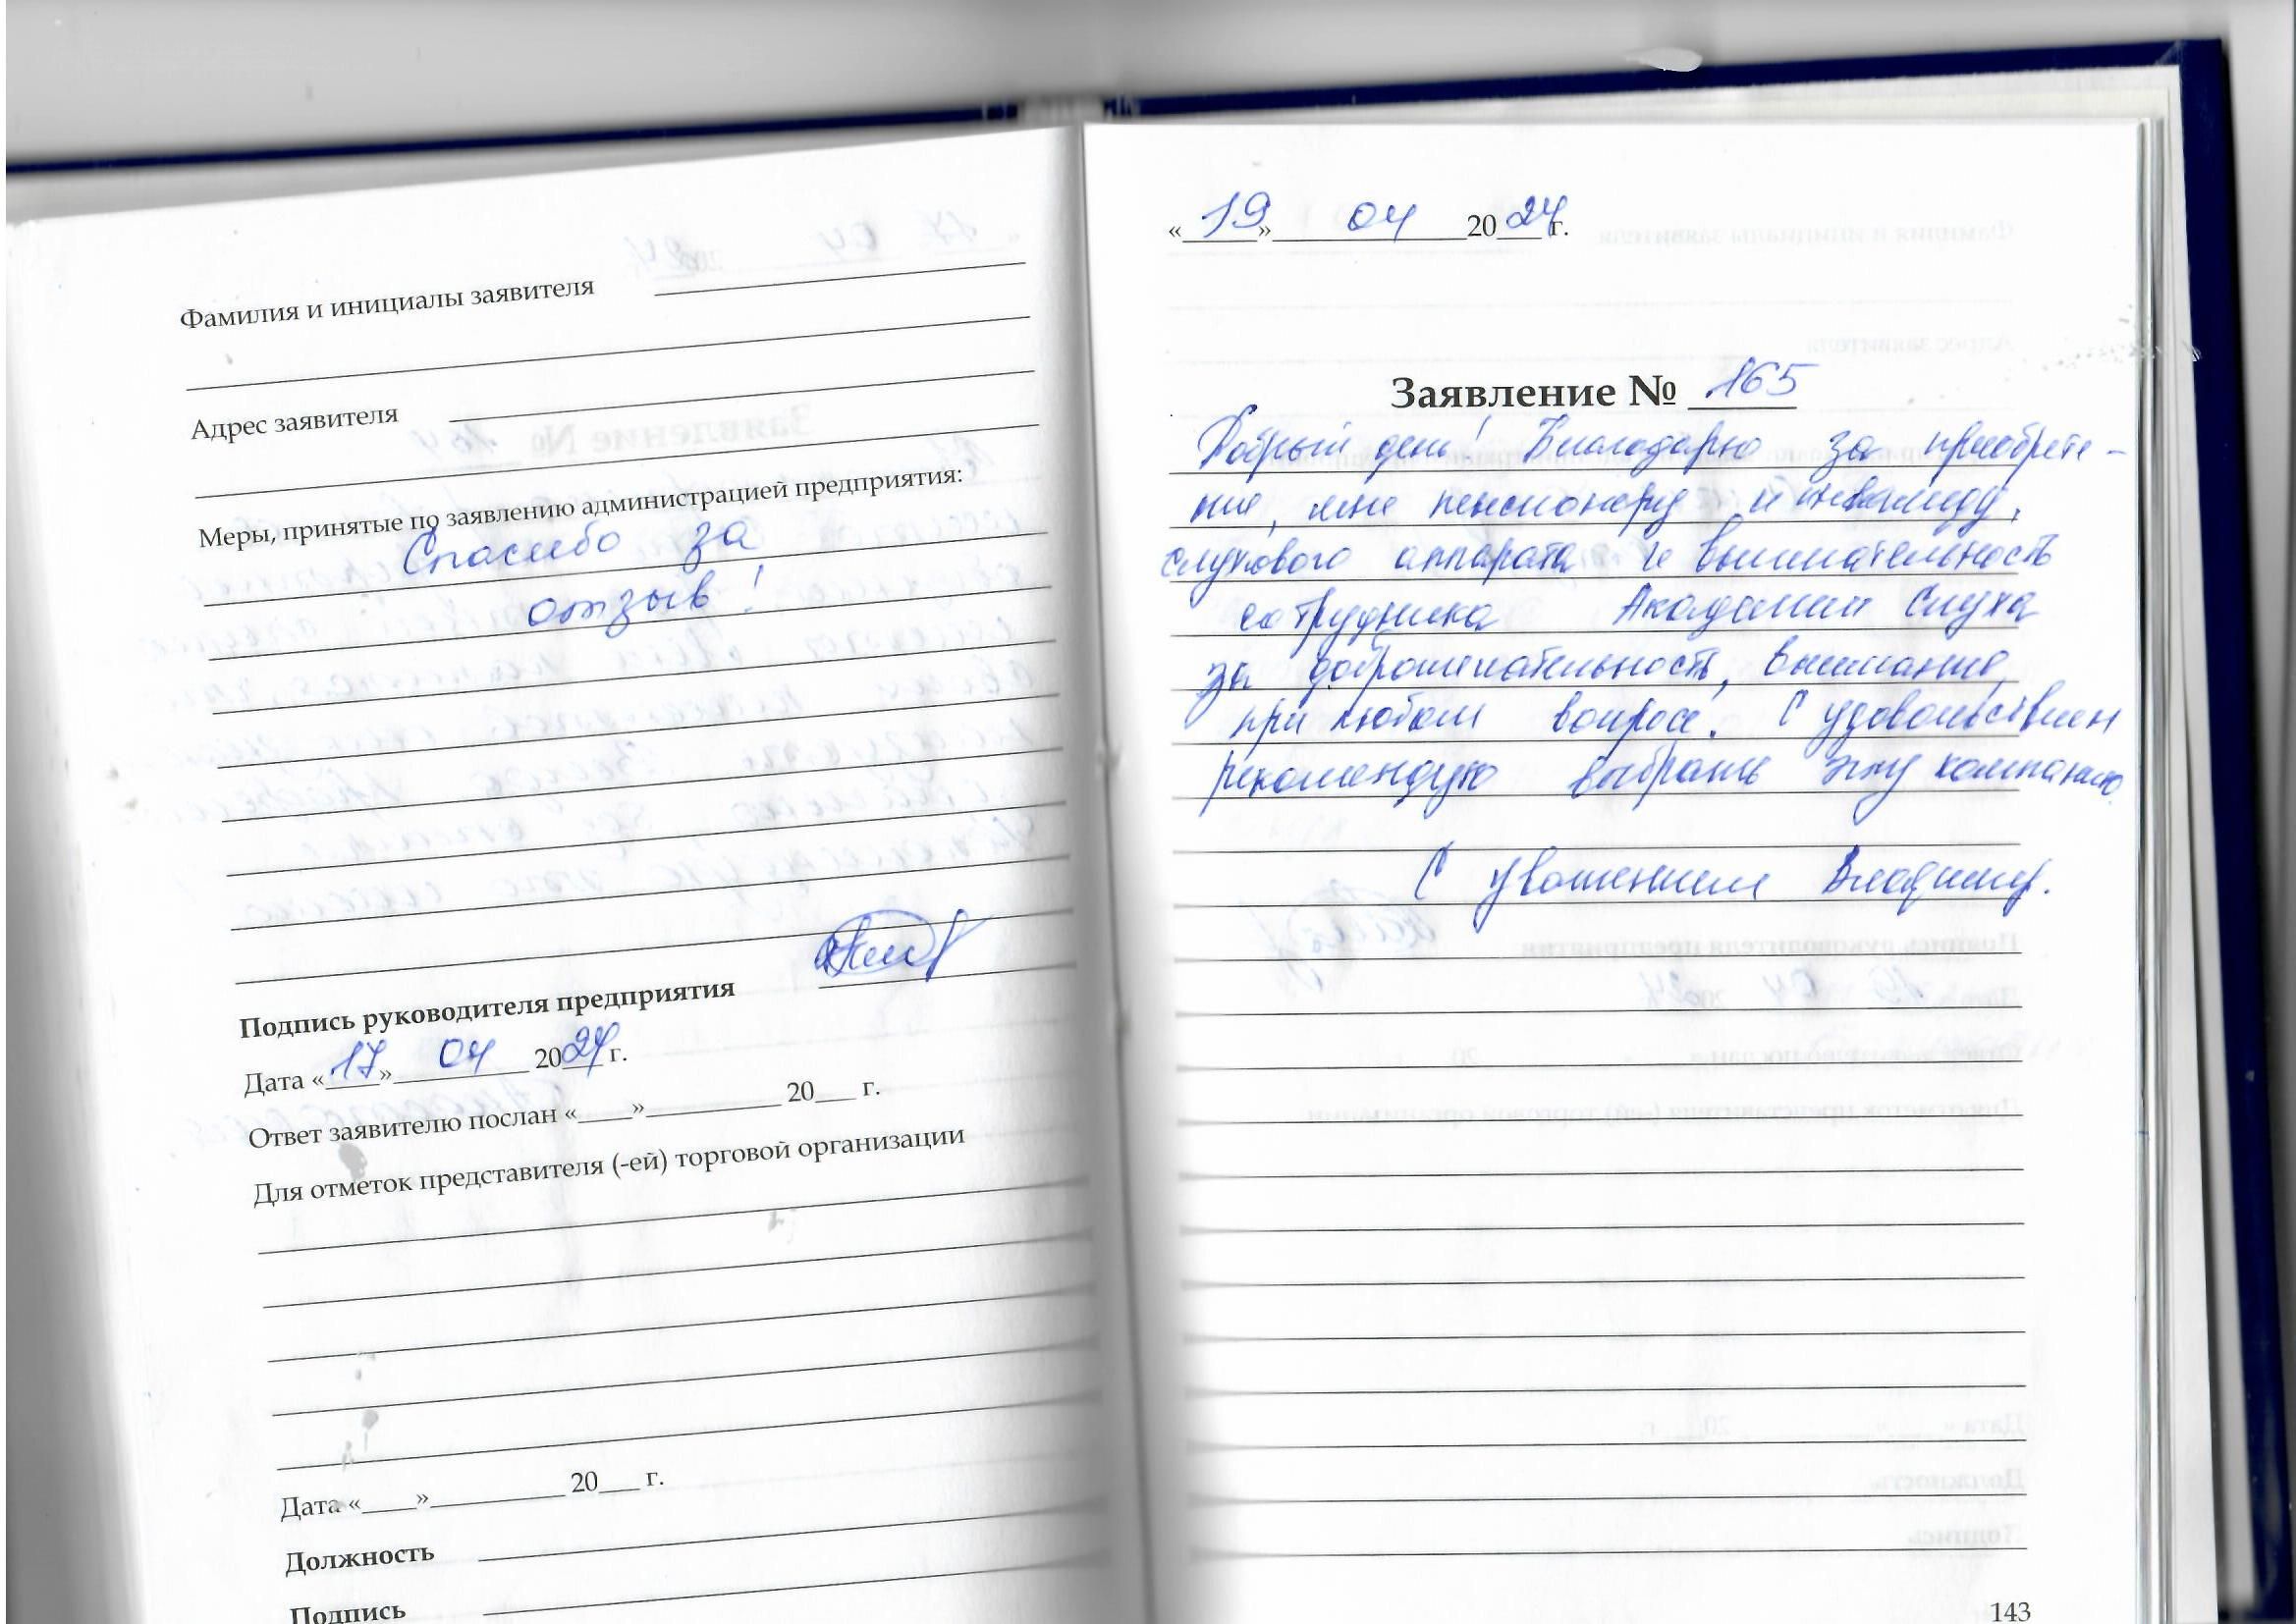 Фамилия и инициалы заявителя
Адрес заявителя
Меры, принятые по заявлению администрацией предприятия:
Спасибо за
отзыв!
Подпись руководителя предприятия
Дата «17» 04 2024 г.
Ответ заявителю послан «____»__________ 20___ г.
Для отметок представителя (-ей) торговой организации
Дата «____»__________ 20___ г.
Должность
Подпись
«19» 04 2024 г.
Заявление № 165
Добрый день! Благодарю за приобрете-
ние, мне пенсионеру и инвалиду,
слухового аппарата и внимательность
сотрудника Академии Слуха
за доброжелательность, внимание,
при любом вопросе. С удовольствием
рекомендую выбрать эту компанию.
С уважением Владимир.
143